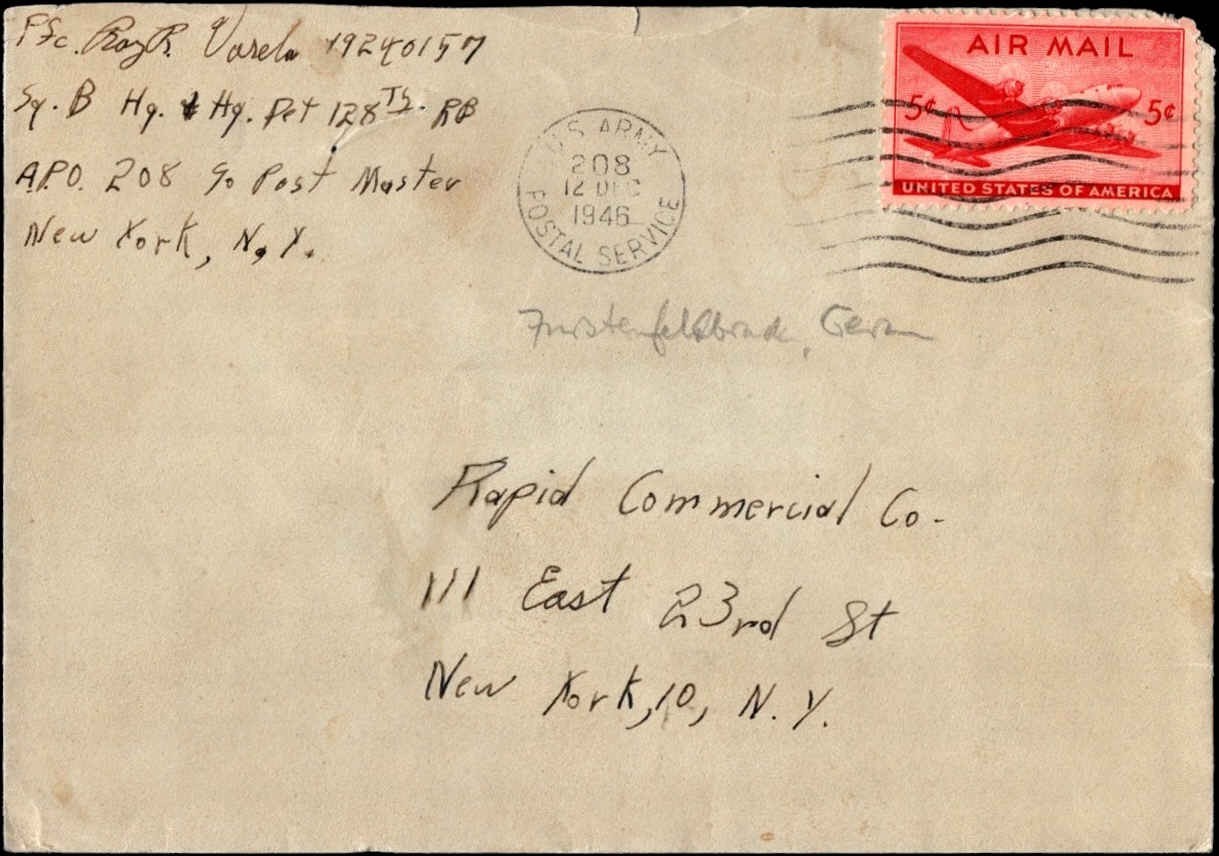 Pfc. Ray R. Varela 19240157
Sq. B Hq. & Hq. Det 128TS. RB
A.P.O. 208 % Post Master
New York, N.Y.
U.S. ARMY
208
12 DEC
1946
POSTAL SERVICE
AIR MAIL
5¢ 5¢
UNITED STATES OF AMERICA
Furstenfeldbruck, Germ
Rapid Commercial Co.
111 East 23rd St
New York, 10, N.Y.